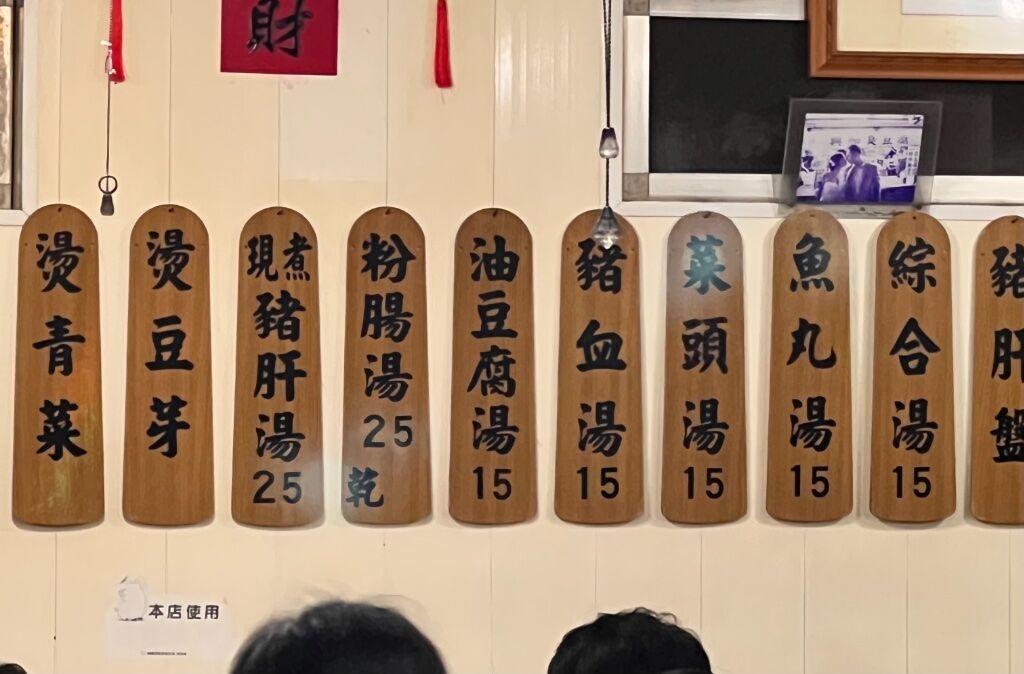 財
燙青菜
燙豆芽
現煮豬肝湯
25
粉腸湯
25
乾
油豆腐湯
15
豬血湯
15
菜頭湯
15
魚丸湯
15
綜合湯
15
豬肝盤
本店使用